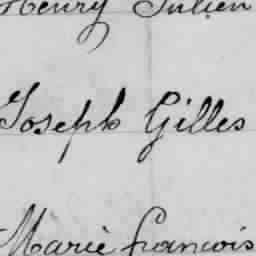 Henry Julien
Joseph Gilles
Marie francois